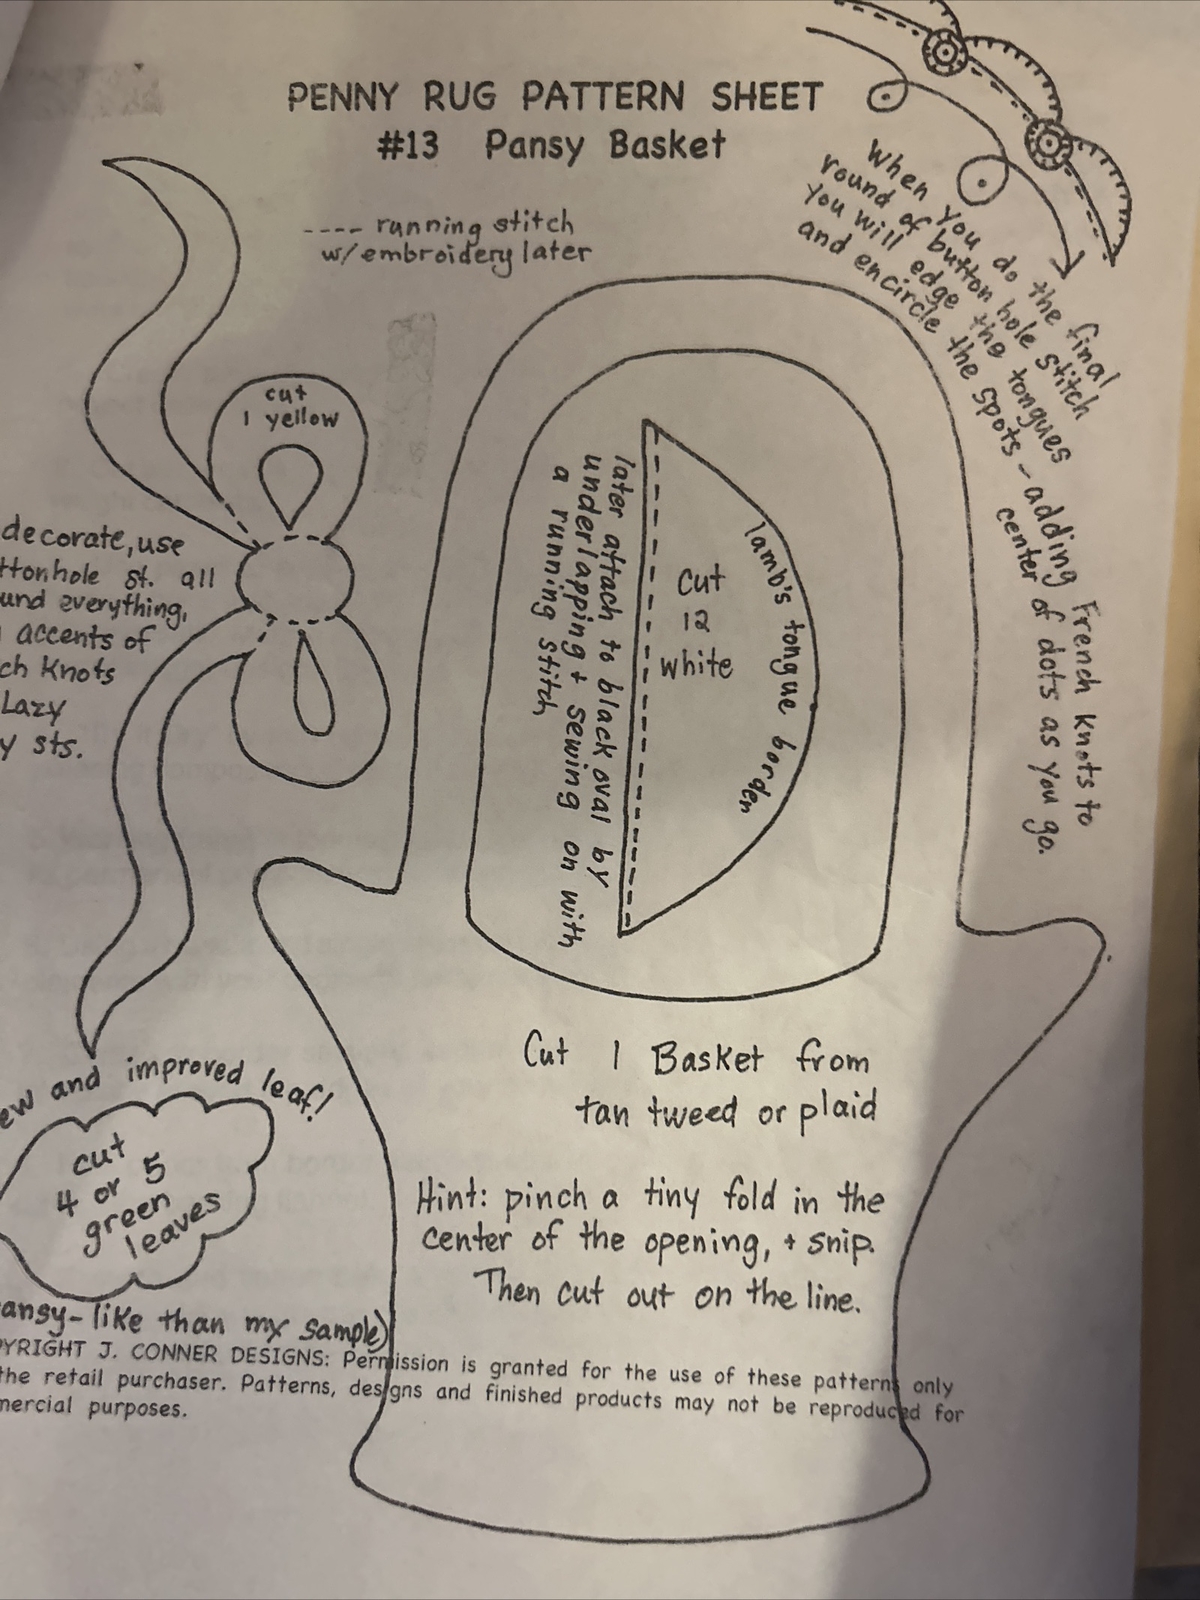 PENNY RUG PATTERN SHEET
#13 Pansy Basket
---- running stitch
w/embroidery later
When you do the final
round of button hole stitch
you will edge the tongues
and encircle the spots - adding French knots to
center of dots as you go.
cut
1 yellow
decorate, use
ttonhole st. all
und everything,
accents of
ch Knots
Lazy
y sts.
later attach to black oval by
underlapping + sewing on with
a running stitch
cut
12
white
lamb's tongue border
ew and improved leaf!
cut
4 or 5
green
leaves
ansy-like than my sample)
Cut 1 Basket from
tan tweed or plaid
Hint: pinch a tiny fold in the
center of the opening, + snip.
Then cut out on the line.
PYRIGHT J. CONNER DESIGNS: Permission is granted for the use of these patterns only
the retail purchaser. Patterns, designs and finished products may not be reproduced for
mercial purposes.